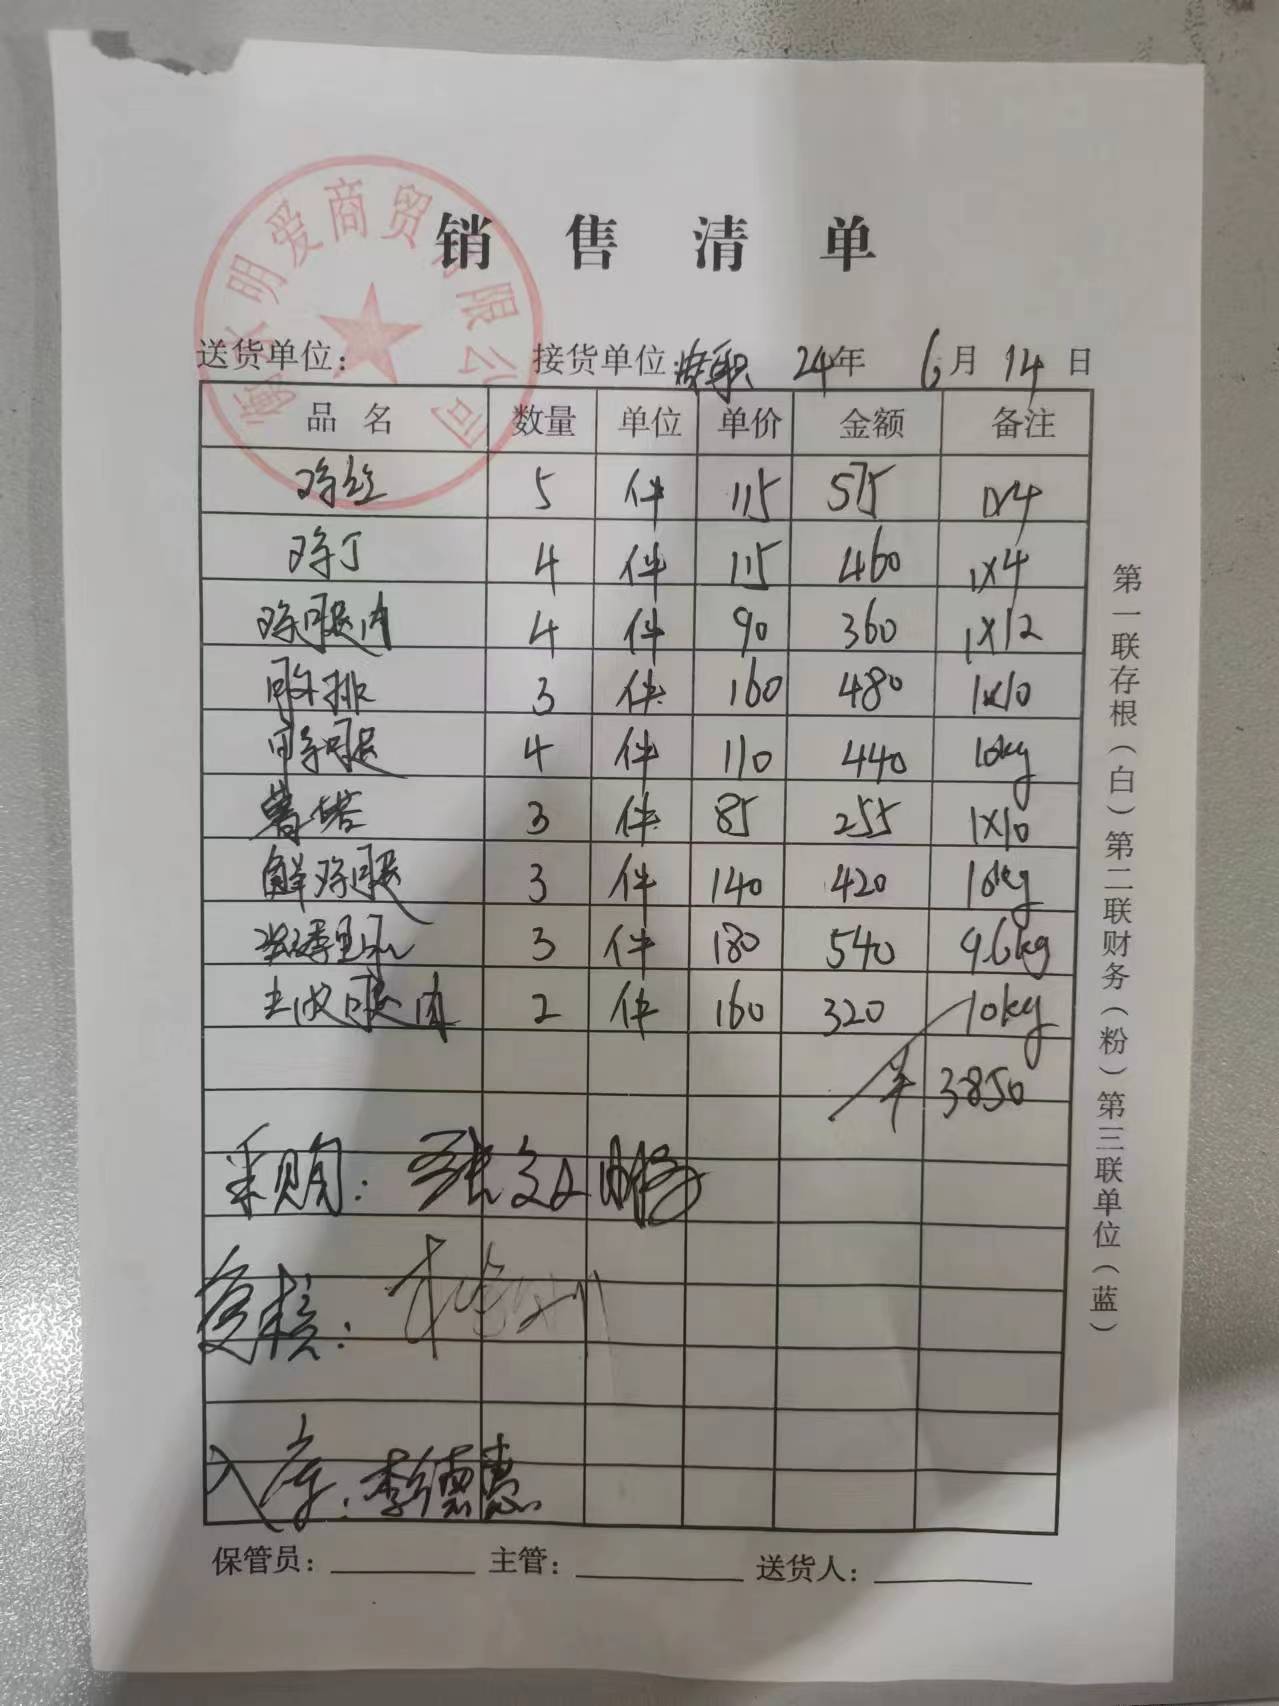 衡水明爱商贸有限公司
销售清单
送货单位: 接货单位: 24年 6月 14日
品名 数量 单位 单价 金额 备注
鸡丝 5 件 115 575 1×4
鸡丁 4 件 115 460 1×4
鸡腿肉 4 件 90 360 1×12
排 3 件 160 480 1×10
腿 4 件 110 440 10kg
薯塔 3 件 85 255 1×10
鲜鸡腿 3 件 140 420 10kg
3 件 180 540 9.6kg
去皮腿肉 2 件 160 320 10kg
¥ 3850
采购: 张文
复核:
入库: 李德惠
保管员: 主管: 送货人:
第一联存根(白)第二联财务(粉)第三联单位(蓝)